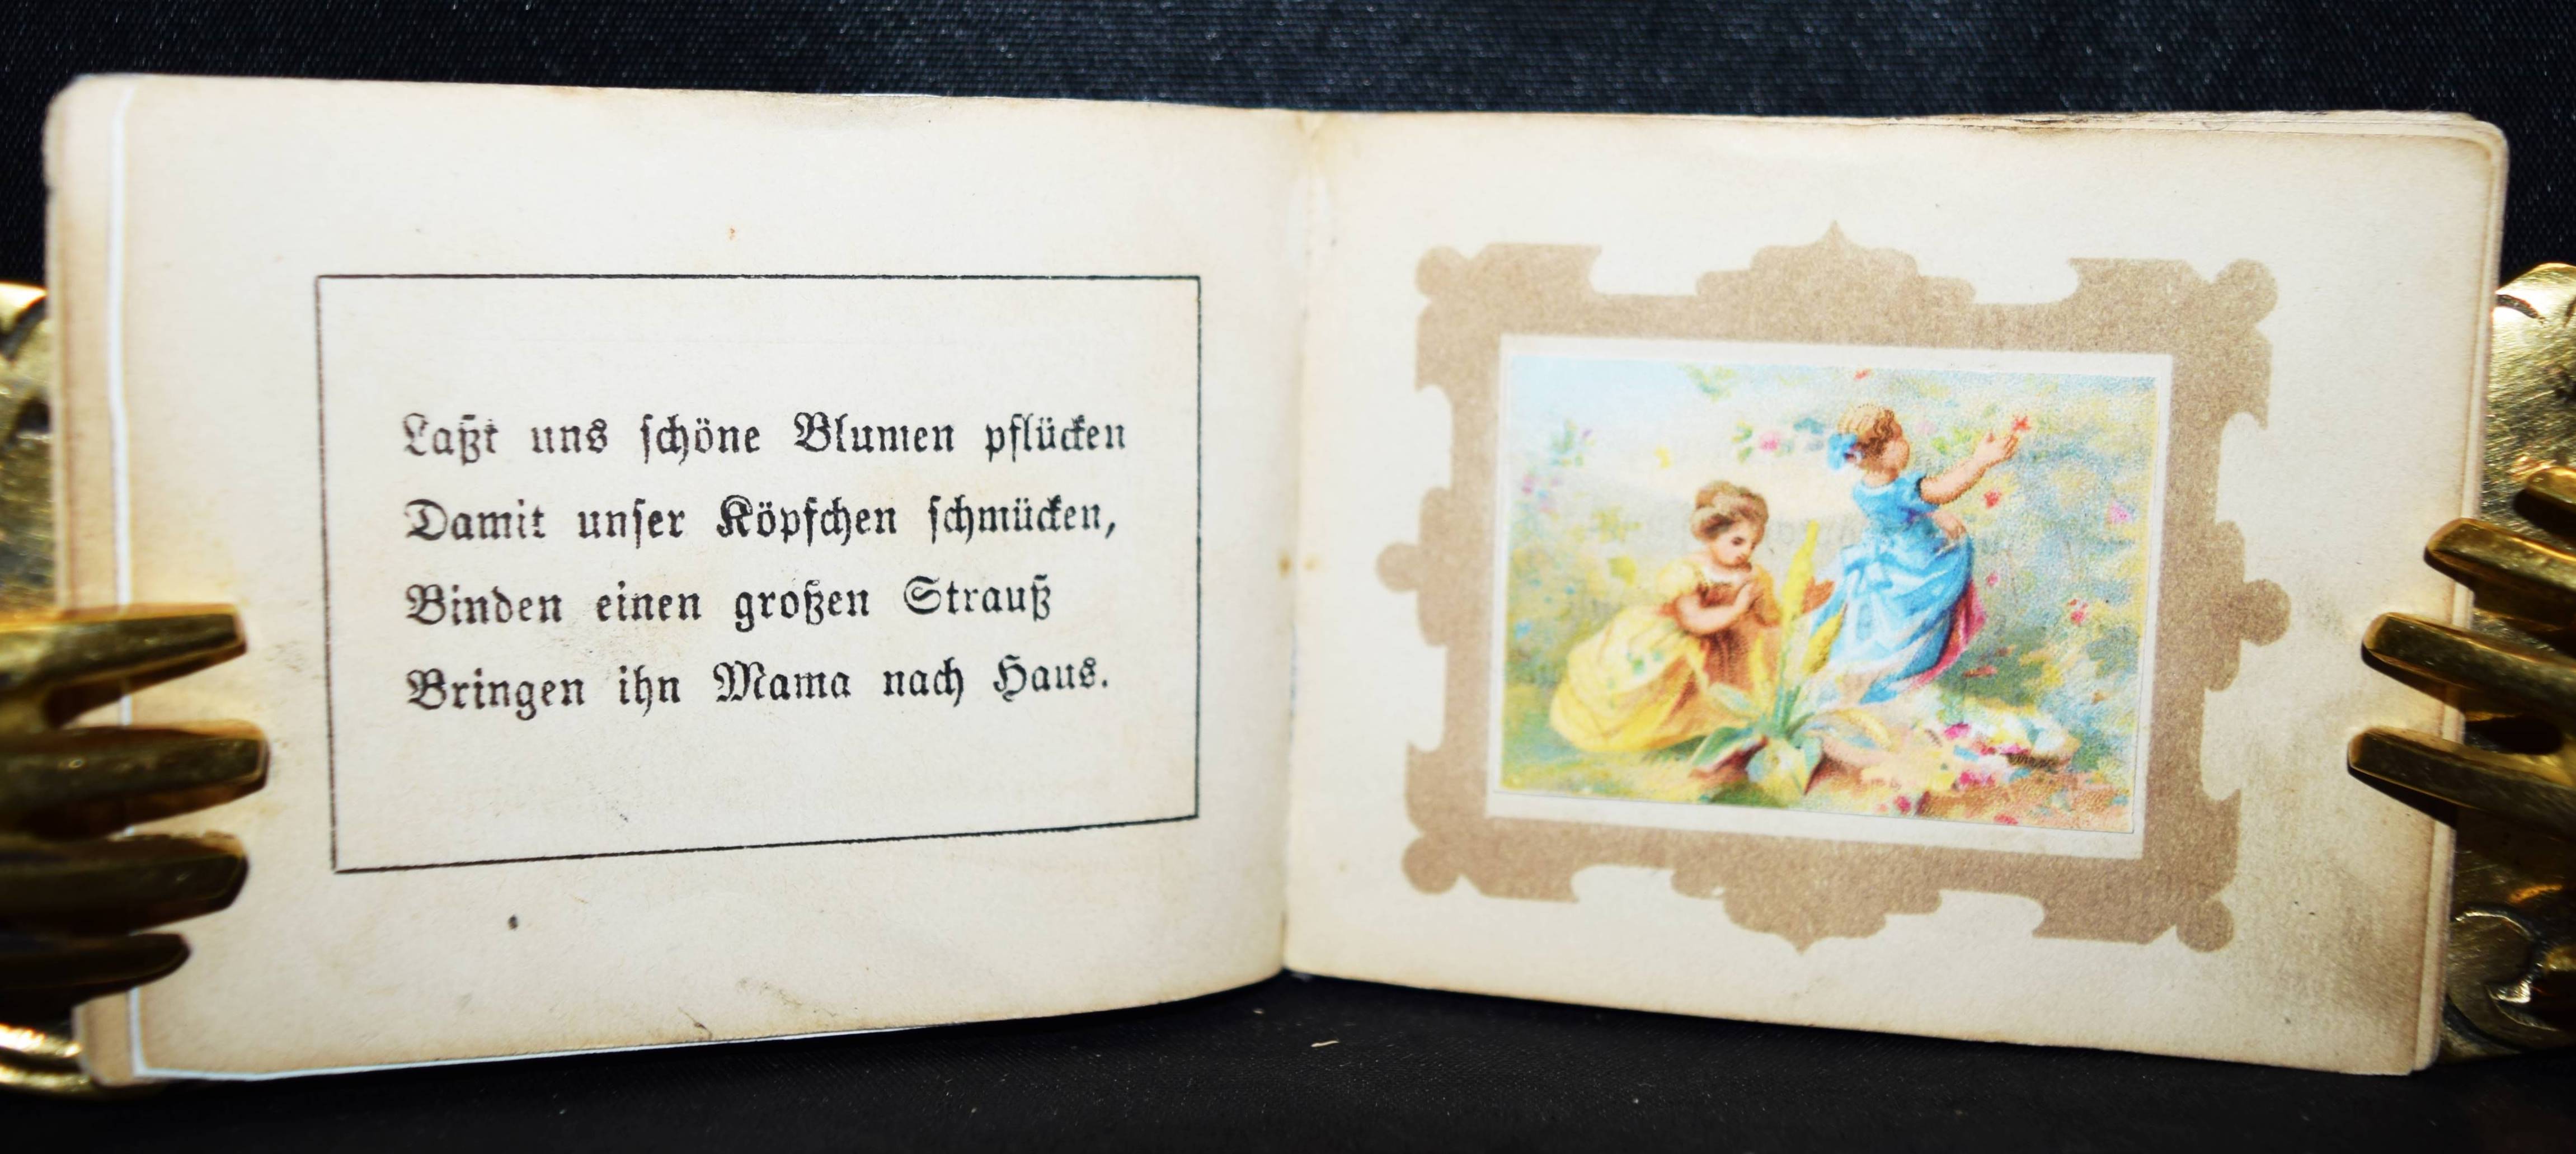 Laßt uns schöne Blumen pflücken
Damit unser Köpfchen schmücken,
Binden einen großen Strauß
Bringen ihn Mama nach Haus.